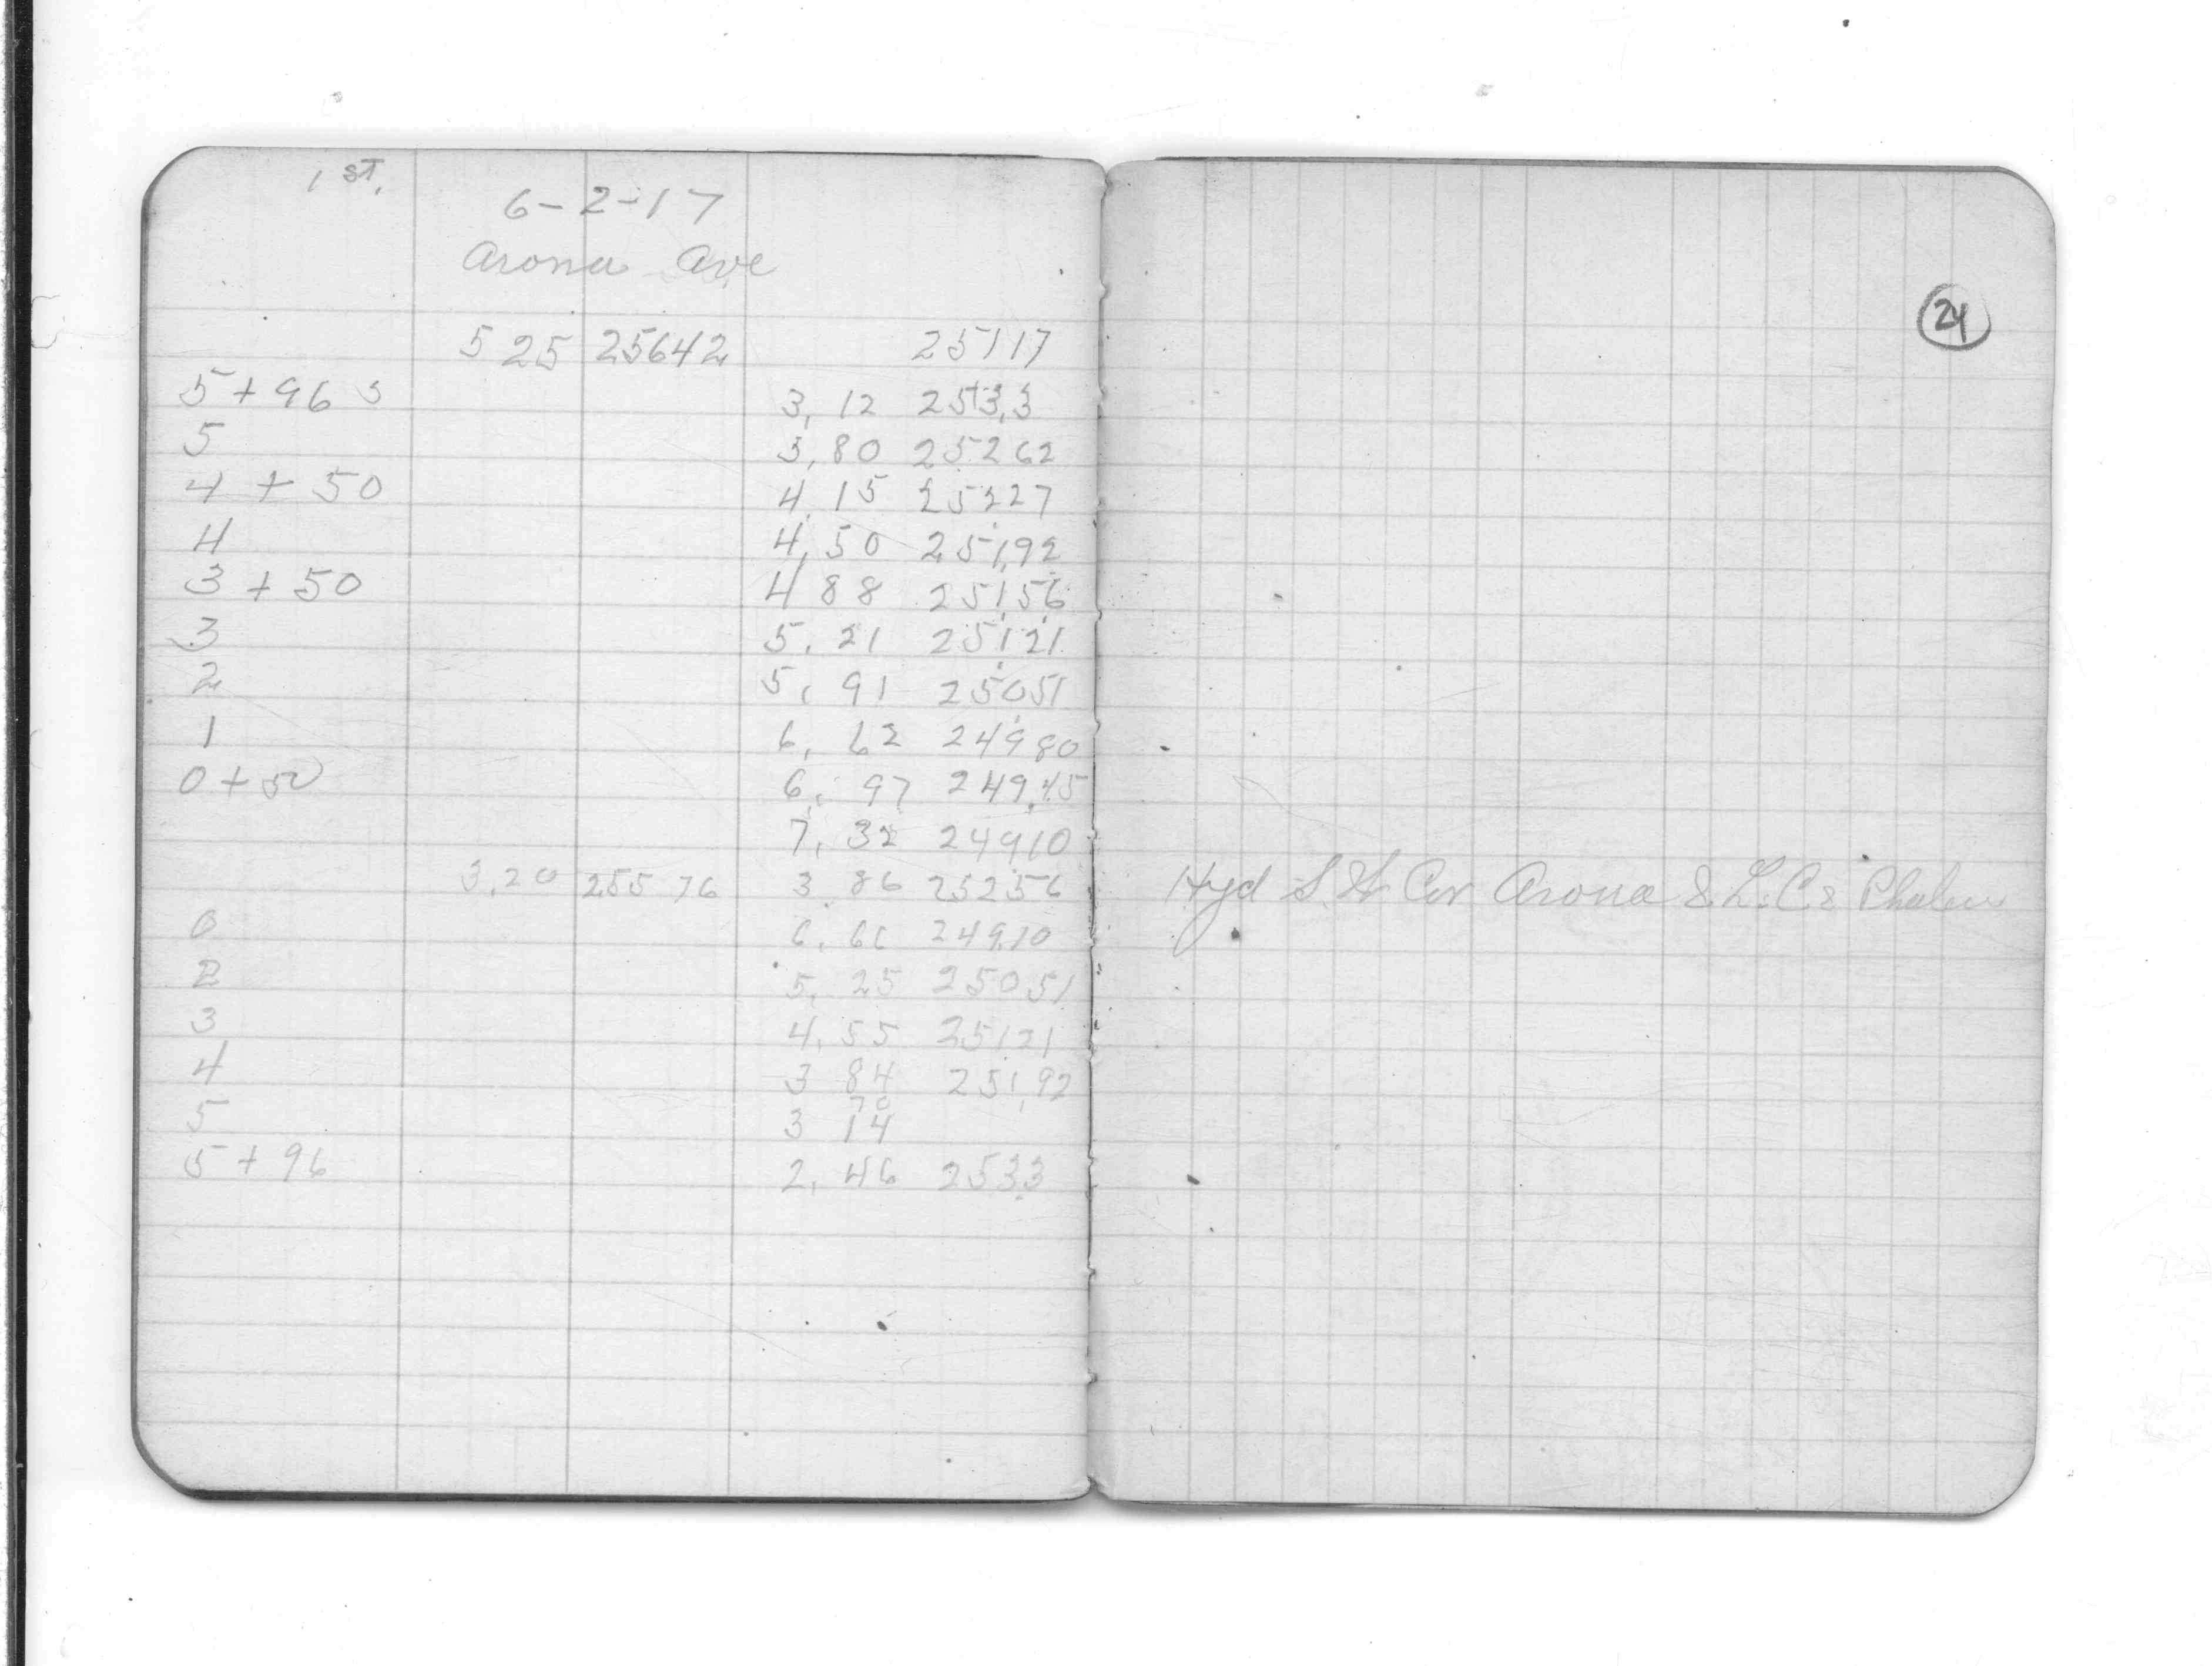 1 ST.
6-2-17
Arona Ave
5 25 25642 25117
5+96 5 3,12 253,3
5 3,80 25262
4+50 4,15 25227
4 4,50 251,92
3+50 4 88 251,56
3 5,21 25121
2 5,91 25051
1 6,62 24980
0+50 6,97 249,45
7,32 24910
3,20 255 76 3 86 25256 Hyd S.W. Cor Arona & L. C &
0 6,66 249,10
2 5,25 25051
3 4,55 25121
4 3 84 251,92
70
5 3 14
5+96 2,46 2533
24